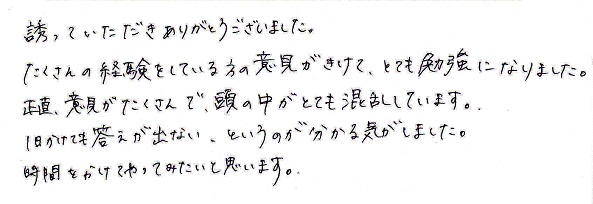 誘っていただきありがとうございました。
たくさんの経験をしている方の意見がきけて、とても勉強になりました。
正直、意見がたくさんで、頭の中がとても混乱しています。
1日かけても答えが出ない、というのが分かる気がしました。
時間をかけてやってみたいと思います。